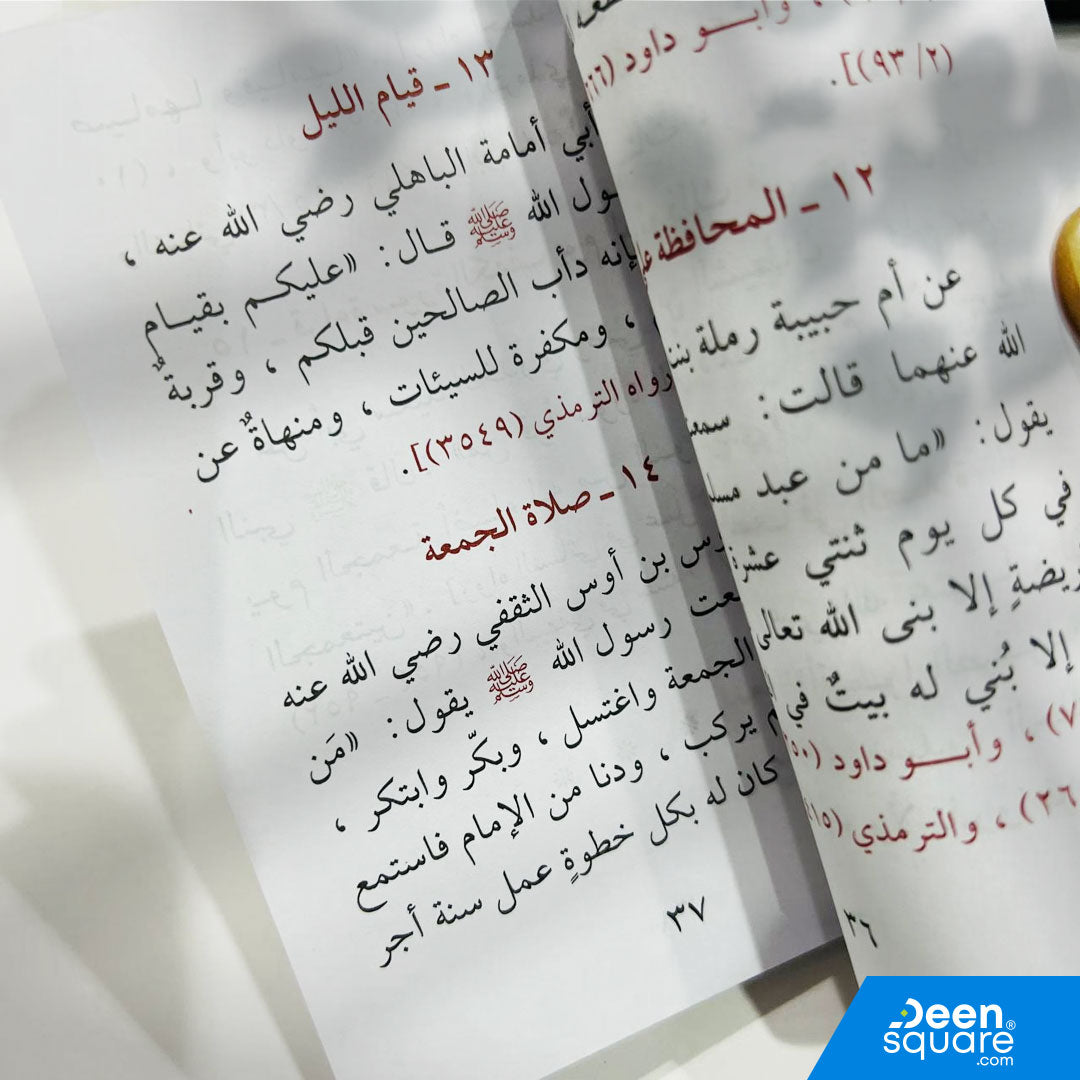 ، وأبــو داود
(٢/ ٩٣)].
١٢ ـ المحافظة
عن أم حبيبة رملة
الله عنهما قالت:
يقول: «ما من عبد
في كل يوم ثنتي عشرة
إلا بنى الله تعالى
إلا بُني له بيتٌ في
، وأبــو داود
، والترمذي
٣٦
١٣ ـ قيام الليل
أبي أمامة الباهلي رضي الله عنه ،
الله ﷺ قـال: «عليكـم بقيـام
دأب الصالحين قبلكم ، وقربةٌ
، ومكفرة للسيئات ، ومنهاةٌ عن
رواه الترمذي (٣٥٤٩)].
١٤ ـ صلاة الجمعة
بن أوس الثقفي رضي الله عنه
رسول الله ﷺ يقول: «مَن
الجمعة واغتسل ، وبكّر وابتكر ،
يركب ، ودنا من الإمام فاستمع
كان له بكل خطوةٍ عمل سنة أجر
٣٧
Deen
square®
.com